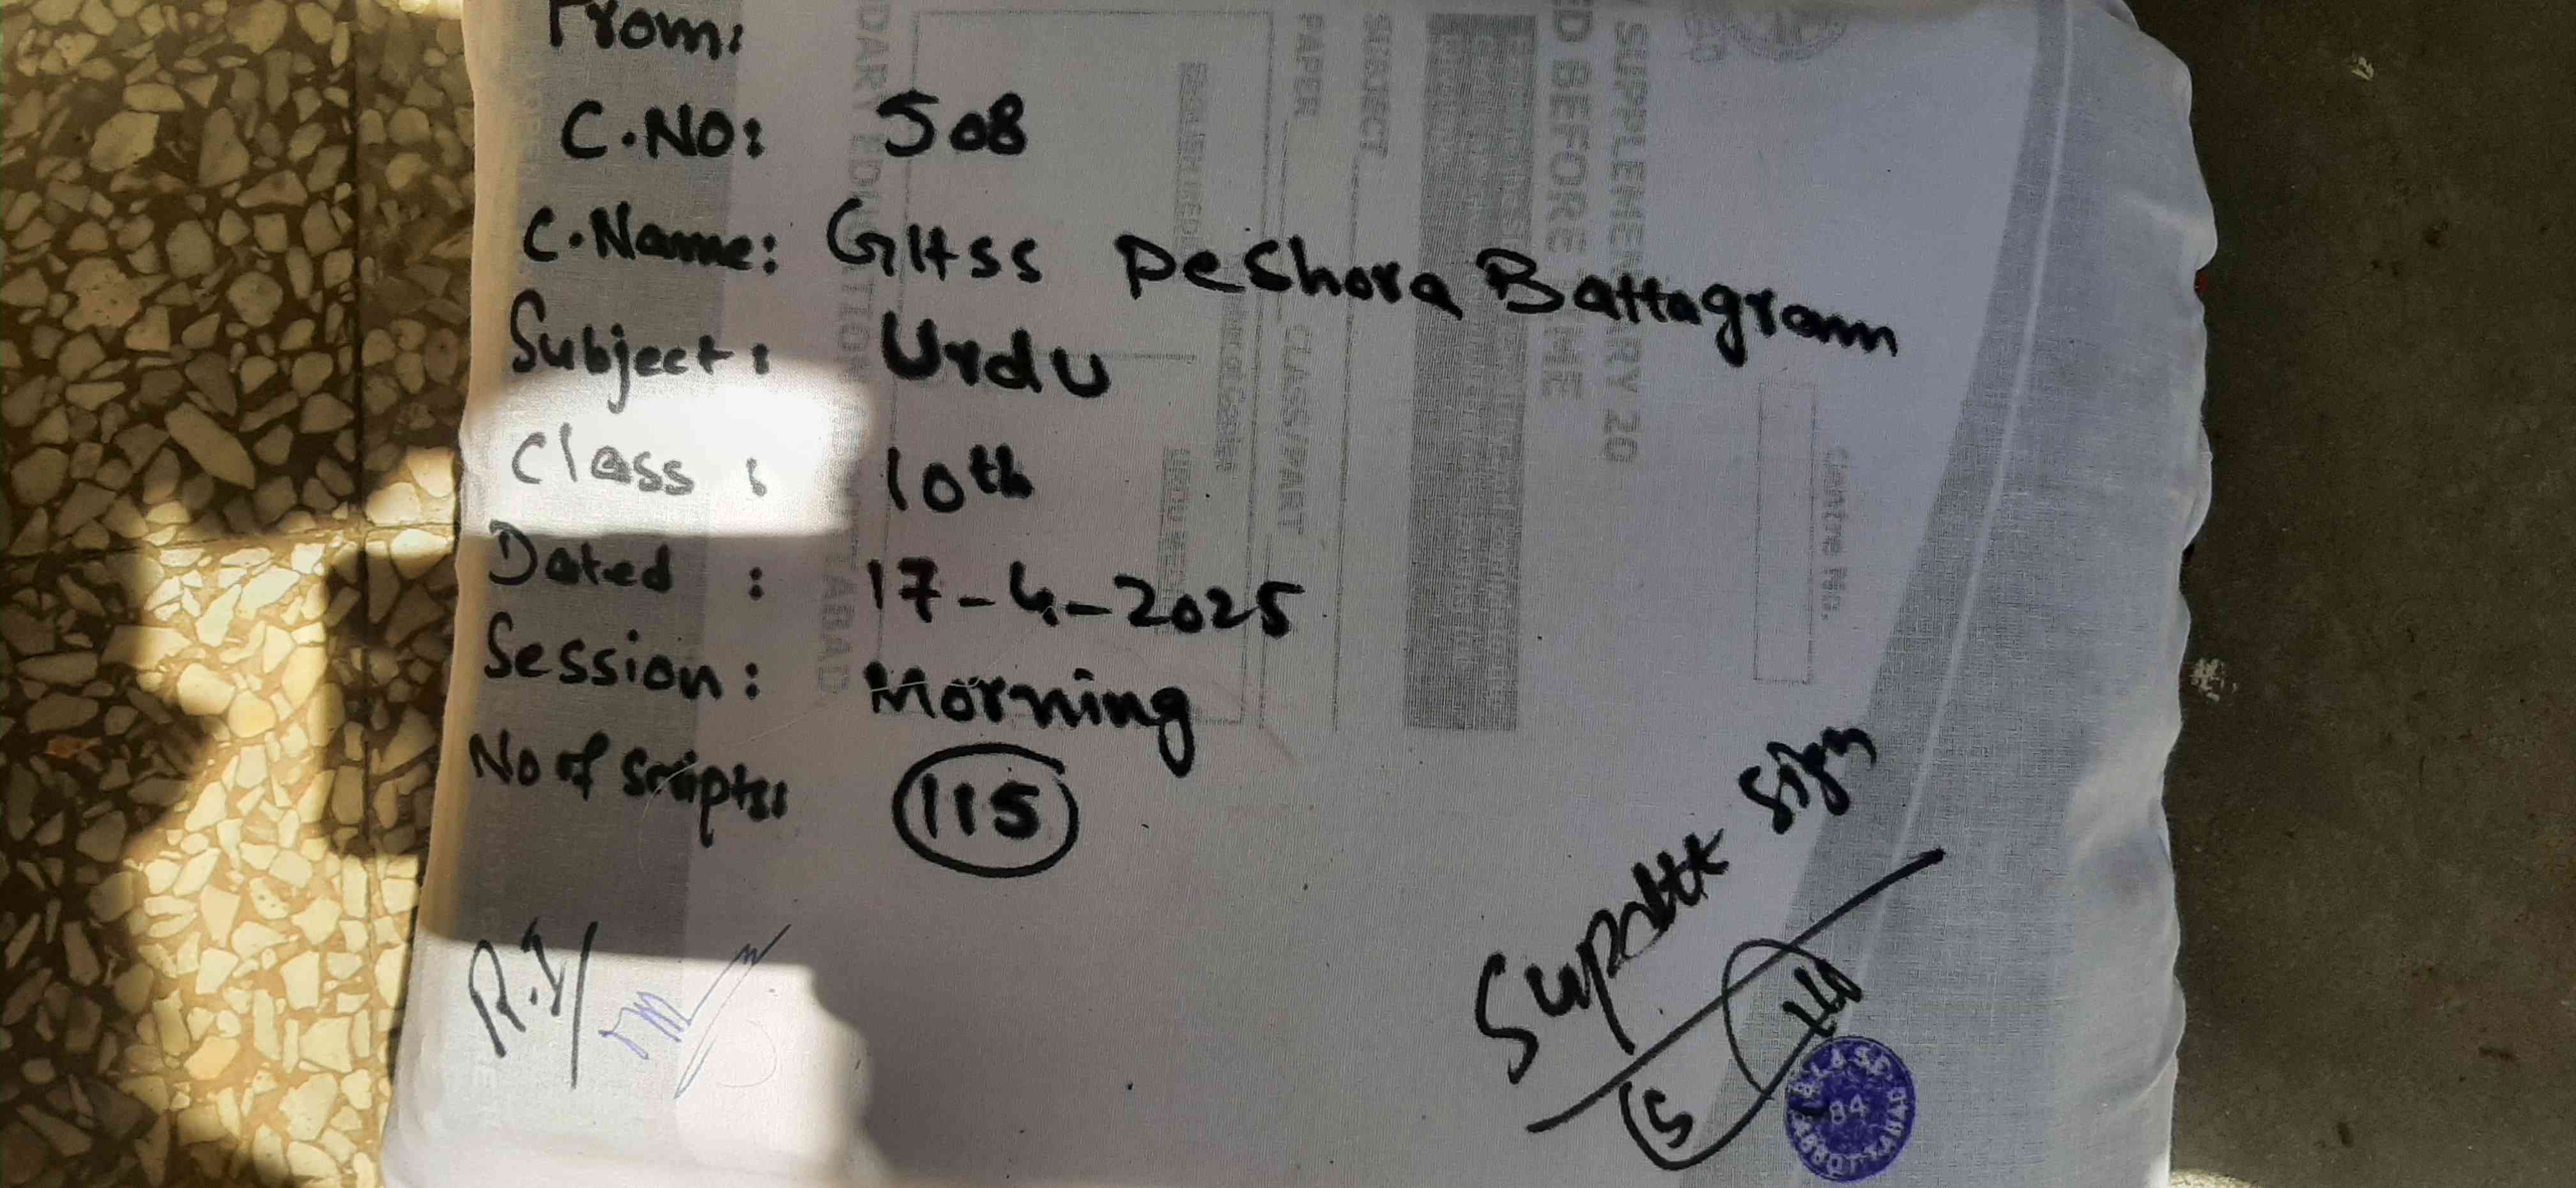 From:
C.NO: 508
C.Name: GHSS Peshora Battagram
Subject: Urdu
Class: 10th
Dated: 17-4-2025
Session: Morning
No of Scripts: 115
R.I/
Supdtt Sign
84
SUBJECT
PAPER
CLASS/PART
Centre No.
SUPPLEMENTARY 20
BEFORE ME